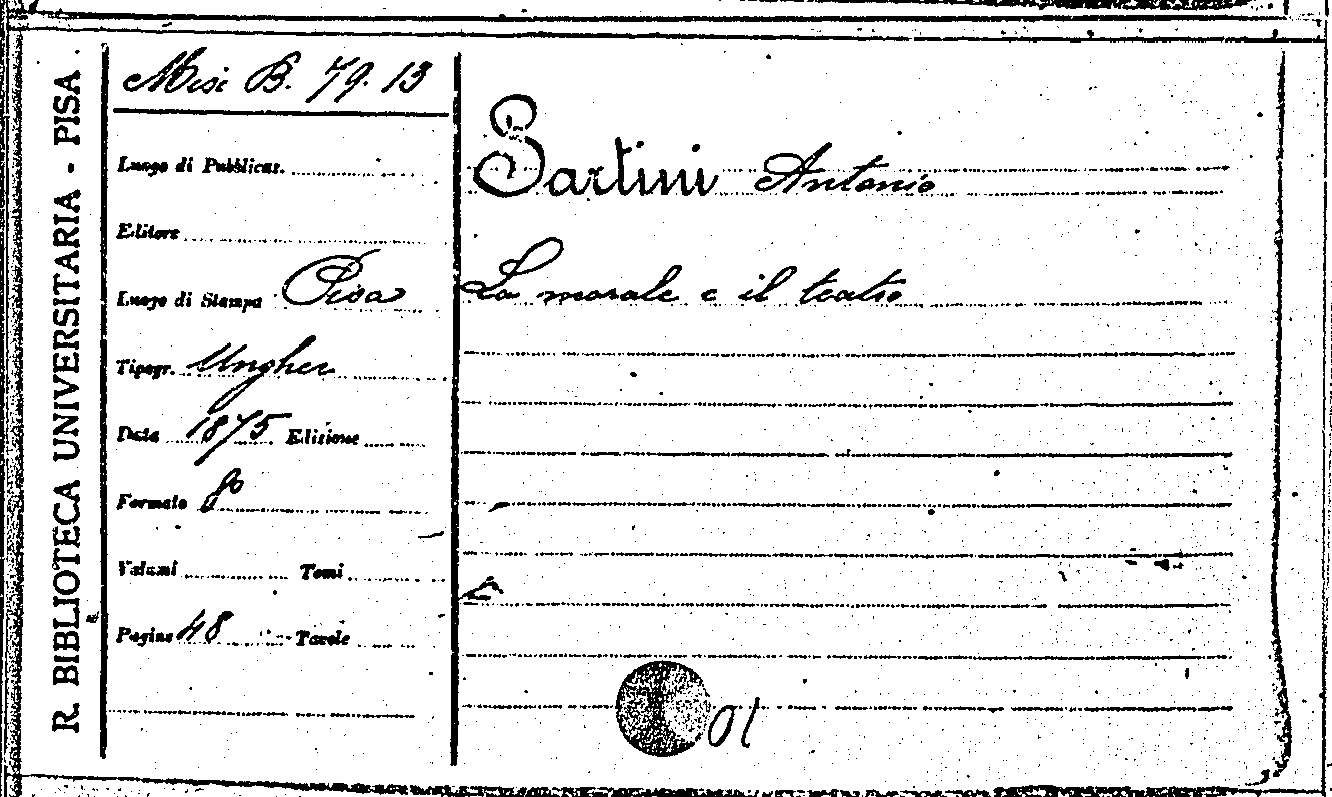 R. BIBLIOTECA UNIVERSITARIA - PISA.
Misc B. 79. 13
Luogo di Pubblicaz.
Editore
Luogo di Stampa Pisa
Tipogr. Ungher
Data 1875 Edizione
Formato 8°
Volumi Tomi
Pagine 48 Tavole
Sartini Antonio
La morale e il teatro
01